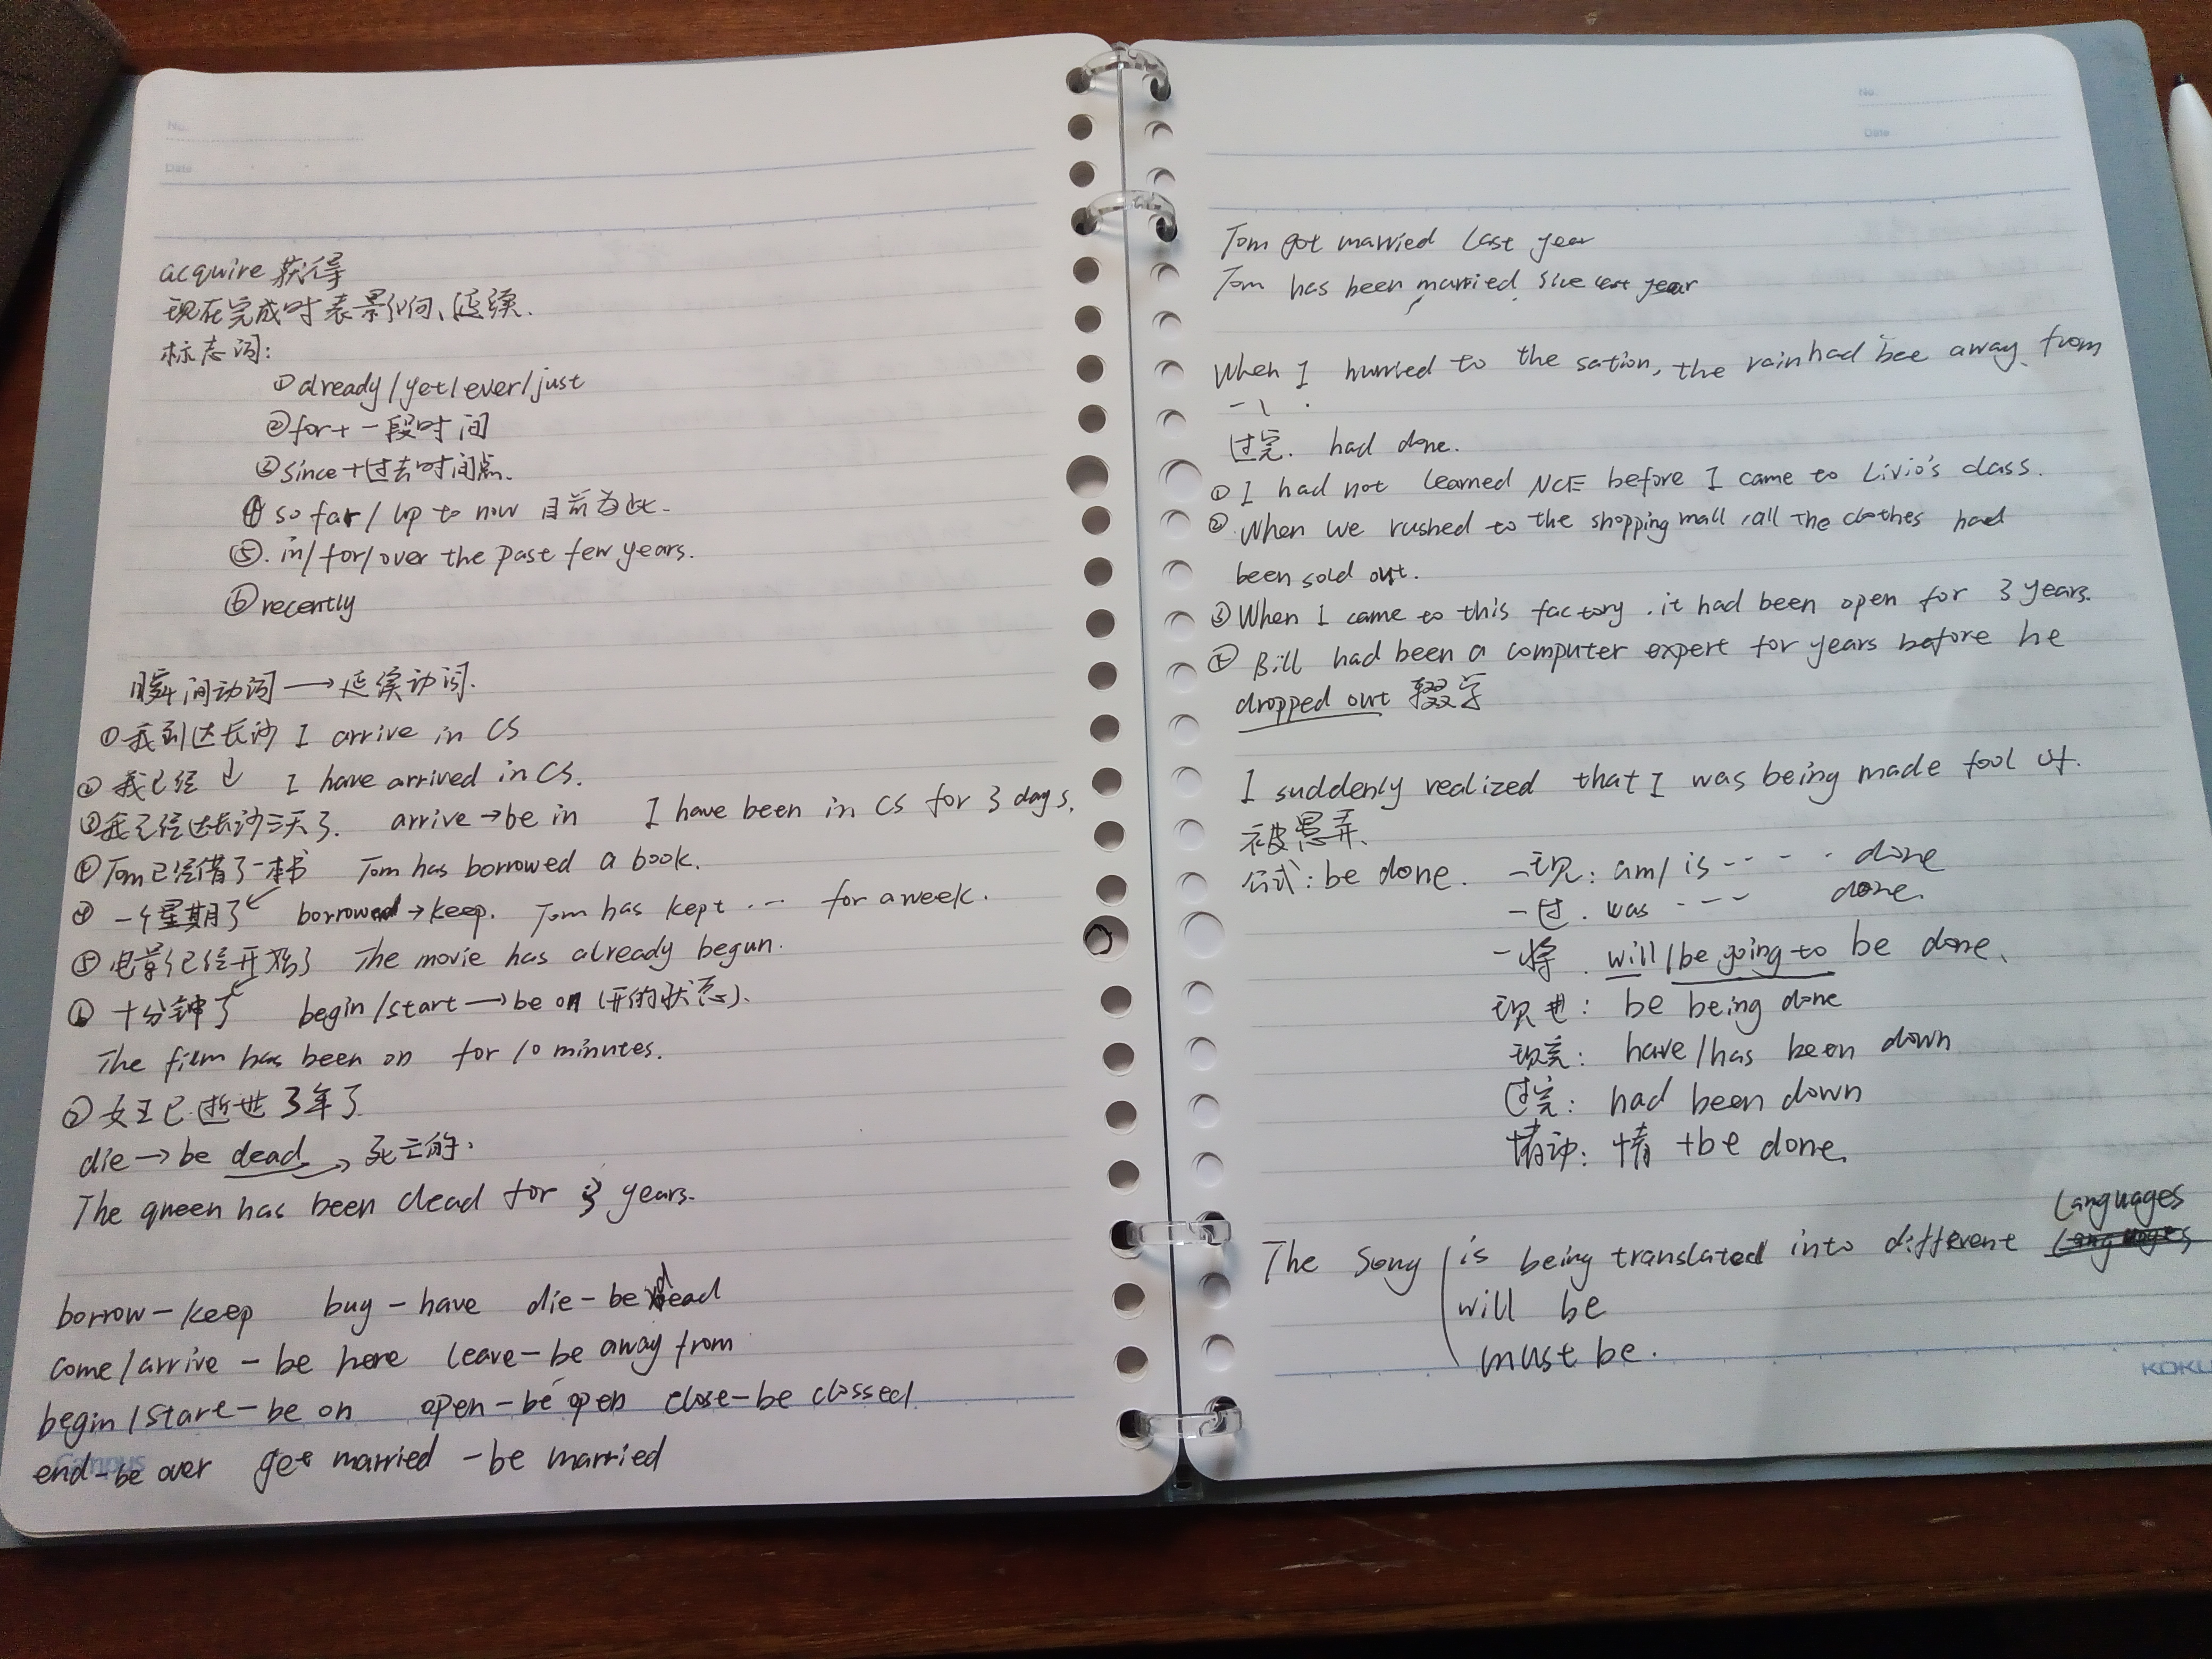 No.
Date
acquire 获得
现在完成时表影响、延续.
标志词:
①already/yet/ever/just
②for+一段时间
③since+过去时间点.
④so far/up to now 目前为止.
⑤.in/for/over the past few years.
⑥recently
瞬间动词→延续动词.
①我到达长沙 I arrive in CS
②我已经↓ I have arrived in CS.
③我已经达长沙三天了. arrive→be in I have been in CS for 3 days.
④Tom已经借了一本书 Tom has borrowed a book.
④一个星期了 borrowed→keep. Tom has kept ... for a week.
⑤电影已经开始了 The movie has already begun.
⑥十分钟了 begin/start→be on (开的状态).
The film has been on for 10 minutes.
⑦女王已逝世3年了
die→be dead→死亡的.
The queen has been dead for 3 years.
borrow-keep buy-have die-be dead
come/arrive-be here leave-be away from
begin/start-be on open-be open close-be clossed
end-be over get married-be married
Campus
No.
Date
Tom got married last year
Tom has been married. sice last year
When I hurried to the sation, the rain had bee away. from
过完. had done.
①I had not learned NCE before I came to Livio's class.
②When we rushed to the shopping mall, all the clothes had
been sold out.
③When I came to this factory. it had been open for 3 years.
④Bill had been a computer expert for years before he
dropped out 辍学
I suddenly realized that I was being made fool of.
被愚弄.
公式: be done. 一现: am/is .... done
一过. was --- done.
一将. will/be going to be done.
现进: be being done
现完: have/has been down
过完: had been down
情动: 情+be done.
Languages
The Song is being translated into different Languages
will be
must be.
KOKU